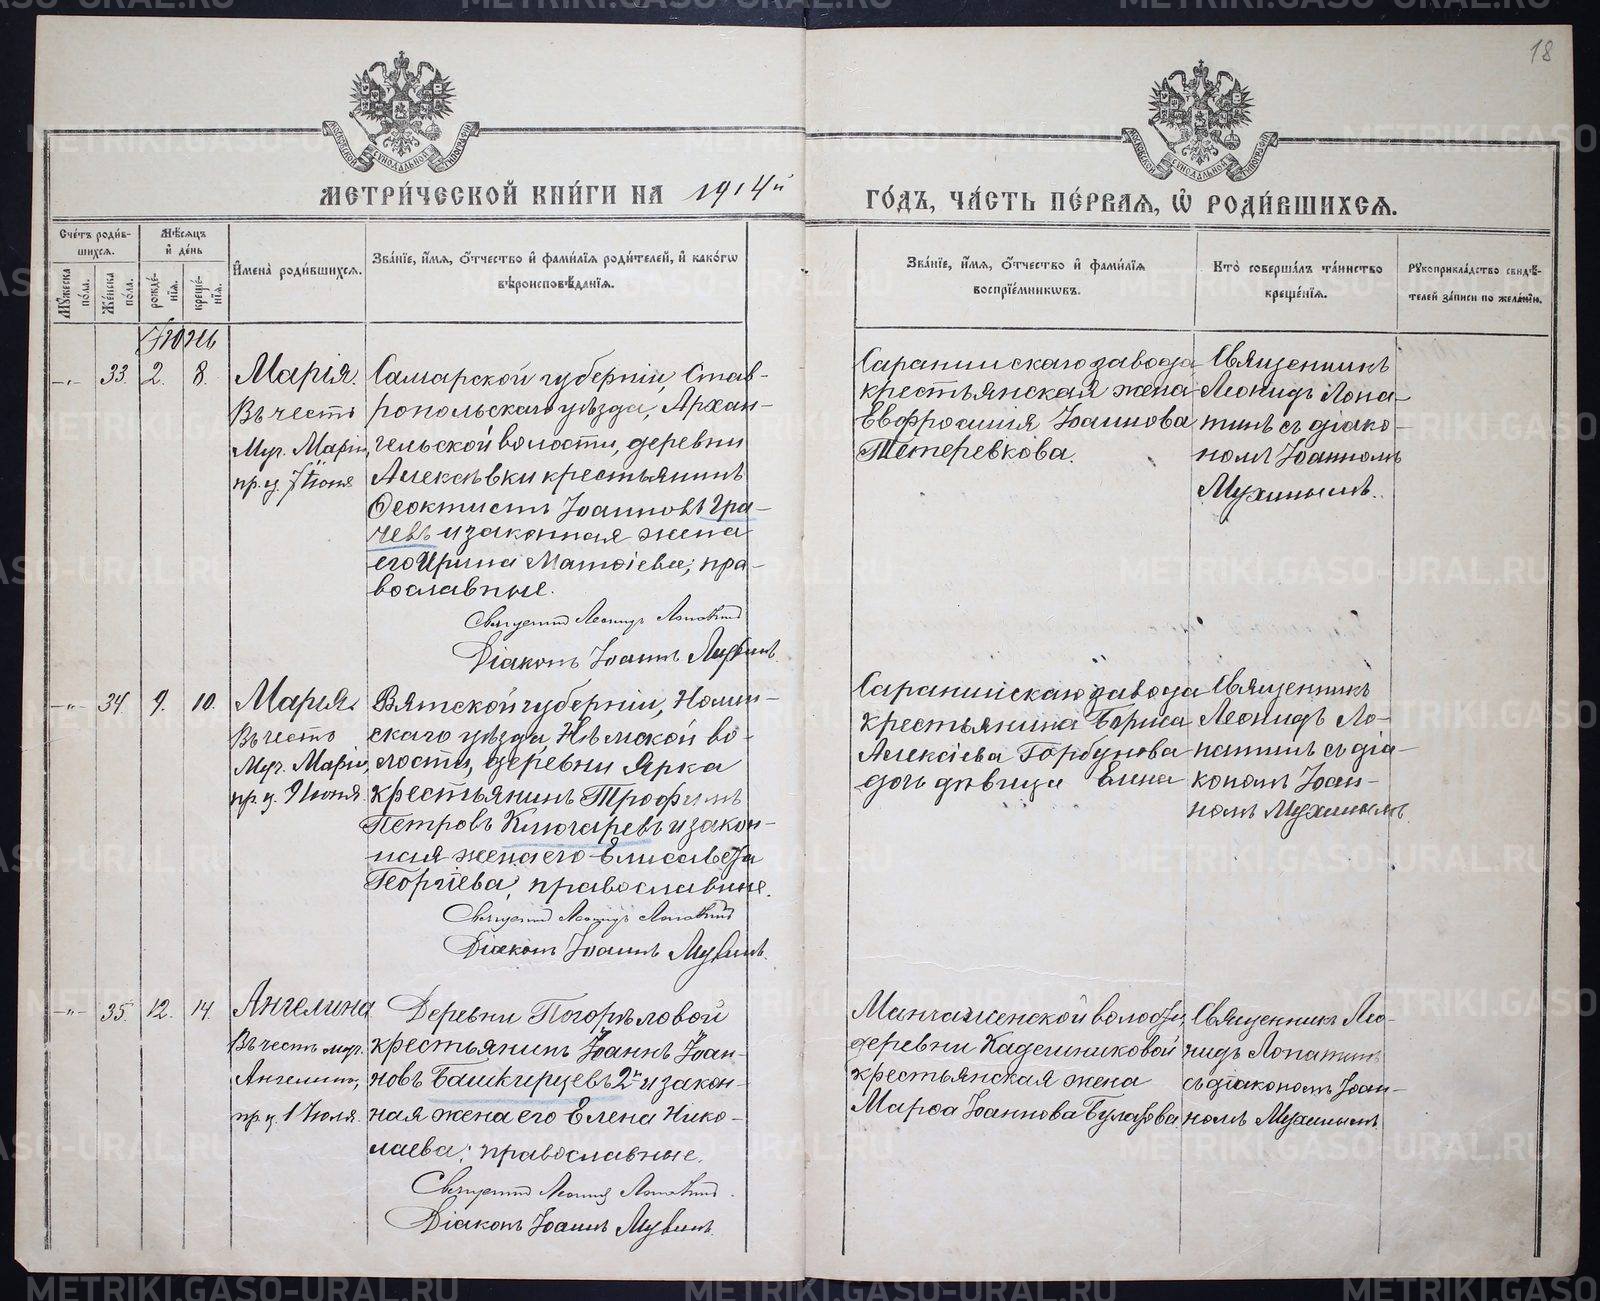 18
МЕТРИ́ЧЕСКОЙ КНИ́ГИ НА 1914й ГО́ДЪ, ЧА́СТЬ ПЕ́РВАЯ, Ѽ РОДИ́ВШИХСЯ.
Сче́тъ роди́в-
шихся.
Мꙋ́жеска
по́ла.
Же́нска
по́ла.
Мѣ́сяцъ
и҆ де́нь
рожде́-
нїя.
креще́-
нїя.
И҆мена̀ роди́вшихся.
Зва́нїе, и҆́мя, ѻ҆́тчество и҆ фами́лїя роди́телей, и҆ како́гѡ
вѣроисповѣ́данїя.
Зва́нїе, и҆́мя, ѻ҆́тчество и҆ фами́лїя
воспрїе́мникѡвъ.
Кто̀ соверша́лъ та́инство
креще́нїя.
Рꙋкоприкла́дство свидѣ́-
телей за́писи по жела́нїю.
Іюнь
—„— 33. 2. 8.
Марія.
Въ честь
Муч. Маріи,
пр. ч. 7 Іюня
Самарской губерніи, Став-
ропольскаго уѣзда, Архан-
гельской волости, деревни
Алексѣвки крестьянинъ
Ѳеоктистъ Іоанновъ Гра-
чевъ и законная жена
его Ирина Матѳіева; пра-
вославные.
Священникъ Леонидъ Лопатинъ
Діаконъ Іоаннъ Мухинъ.
Саранинскаго завода
крестьянская жена
Евфросинія Іоаннова
Тетеревкова.
Священникъ
Леонидъ Лопа-
тинъ съ діако-
номъ Іоанномъ
Мухинымъ.
—„— 34. 9. 10.
Марія.
Въ честь
Муч. Маріи,
пр. ч. 9 Іюня
Вятской губерніи, Нолин-
скаго уѣзда Нѣмской во-
лости, деревни Ярка
крестьянинъ Трофимъ
Петровъ Ключаревъ и закон-
ная жена его Елисавета
Георгіева, православные.
Священникъ Леонидъ Лопатинъ
Діаконъ Іоаннъ Мухинъ.
Саранинскаго завода
крестьянина Бориса
Алексіева Горбунова
дочь дѣвица Елена
Священникъ
Леонидъ Ло-
патинъ съ діа-
кономъ Іоан-
номъ Мухинымъ.
—„— 35. 12. 14.
Ангелина
Въ честь муч.
Ангелины,
пр. ч. 1 Іюля.
Деревни Погорѣловой
крестьянинъ Іоаннъ Іоан-
новъ Башкирцевъ 2й и закон-
ная жена его Елена Нико-
лаева; православные.
Священникъ Леонидъ Лопатинъ.
Діаконъ Іоаннъ Мухинъ.
Манчажской волости,
деревни Кадешниковой
крестьянская жена
Марѳа Іоаннова Булатова
Священникъ Лео-
нидъ Лопатинъ
съ діакономъ Іоан-
номъ Мухинымъ.
METRIKI.GASO-URAL.RU